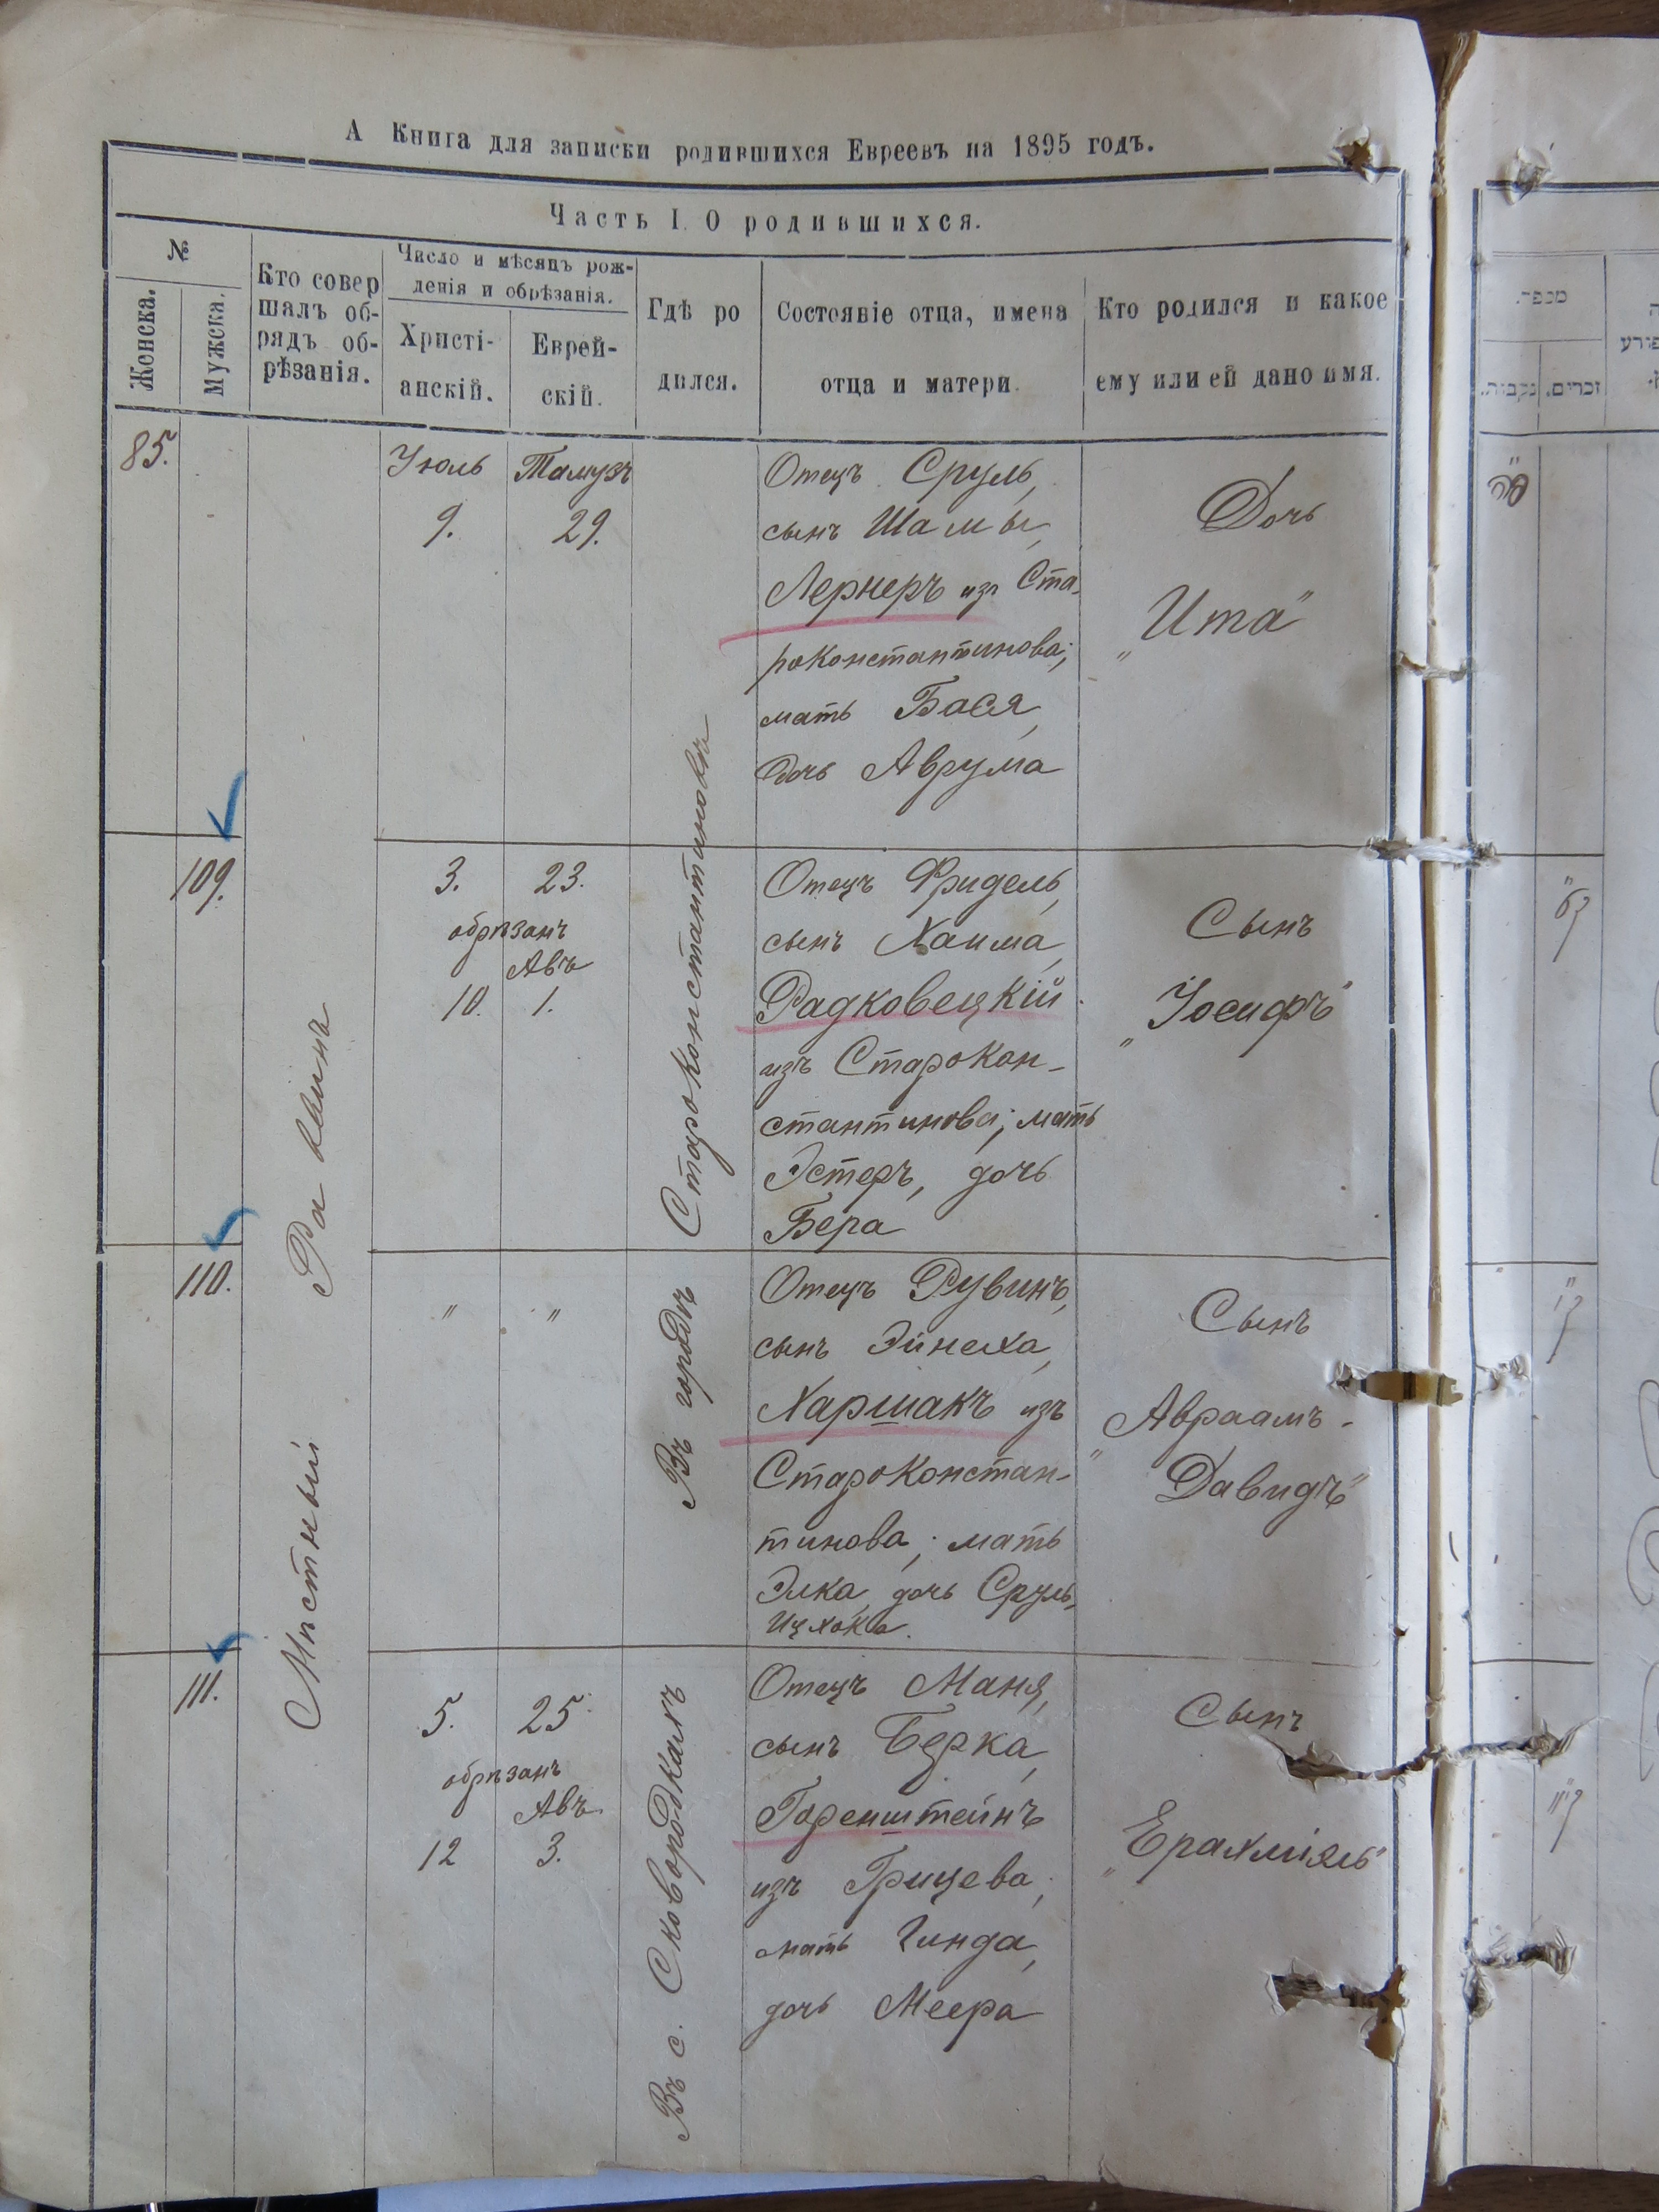 А Книга для записки родившихся Евреевъ на 1895 годъ.
Часть I. О родившихся.
№
Женска.
Мужска.
Кто совер
шалъ об-
рядъ об-
рѣзанія.
Число и мѣсяцъ рож-
денія и обрѣзанія.
Христі-
анскій.
Еврей-
скій.
Гдѣ ро
дился.
Состояніе отца, имена
отца и матери.
Кто родился и какое
ему или ей дано имя.
מספר.
נקבות.
זכרים.
Мѣстный Раввинъ
Въ городѣ Староконстантиновѣ
85.
Іюль
Тамузъ
9.
29.
Отецъ Сруль,
сынъ Шамы,
Лернеръ изъ Ста-
роконстантинова;
мать Бася,
дочь Аврума
Дочь
„Ита"
109.
3.
23.
обрѣзанъ
Авъ
10.
1.
Отецъ Фридель,
сынъ Хаима,
Радковецкій
изъ Старокон-
стантинова; мать
Эстеръ, дочь
Бера
Сынъ
„Іосифъ"
110.
"
"
Отецъ Рувинъ,
сынъ Эйнеха,
Харшакъ изъ
Староконстан-
тинова; мать
Элка, дочь Сруль-
Ицхока.
Сынъ
„Авраамъ-
Давидъ"
111.
5.
25.
обрѣзанъ
Авъ
12
3.
Въ с. Сковородкахъ
Отецъ Маня,
сынъ Берка,
Горенштейнъ
изъ Грицева;
мать Гинда,
дочь Меера
Сынъ
„Ерахміэль"